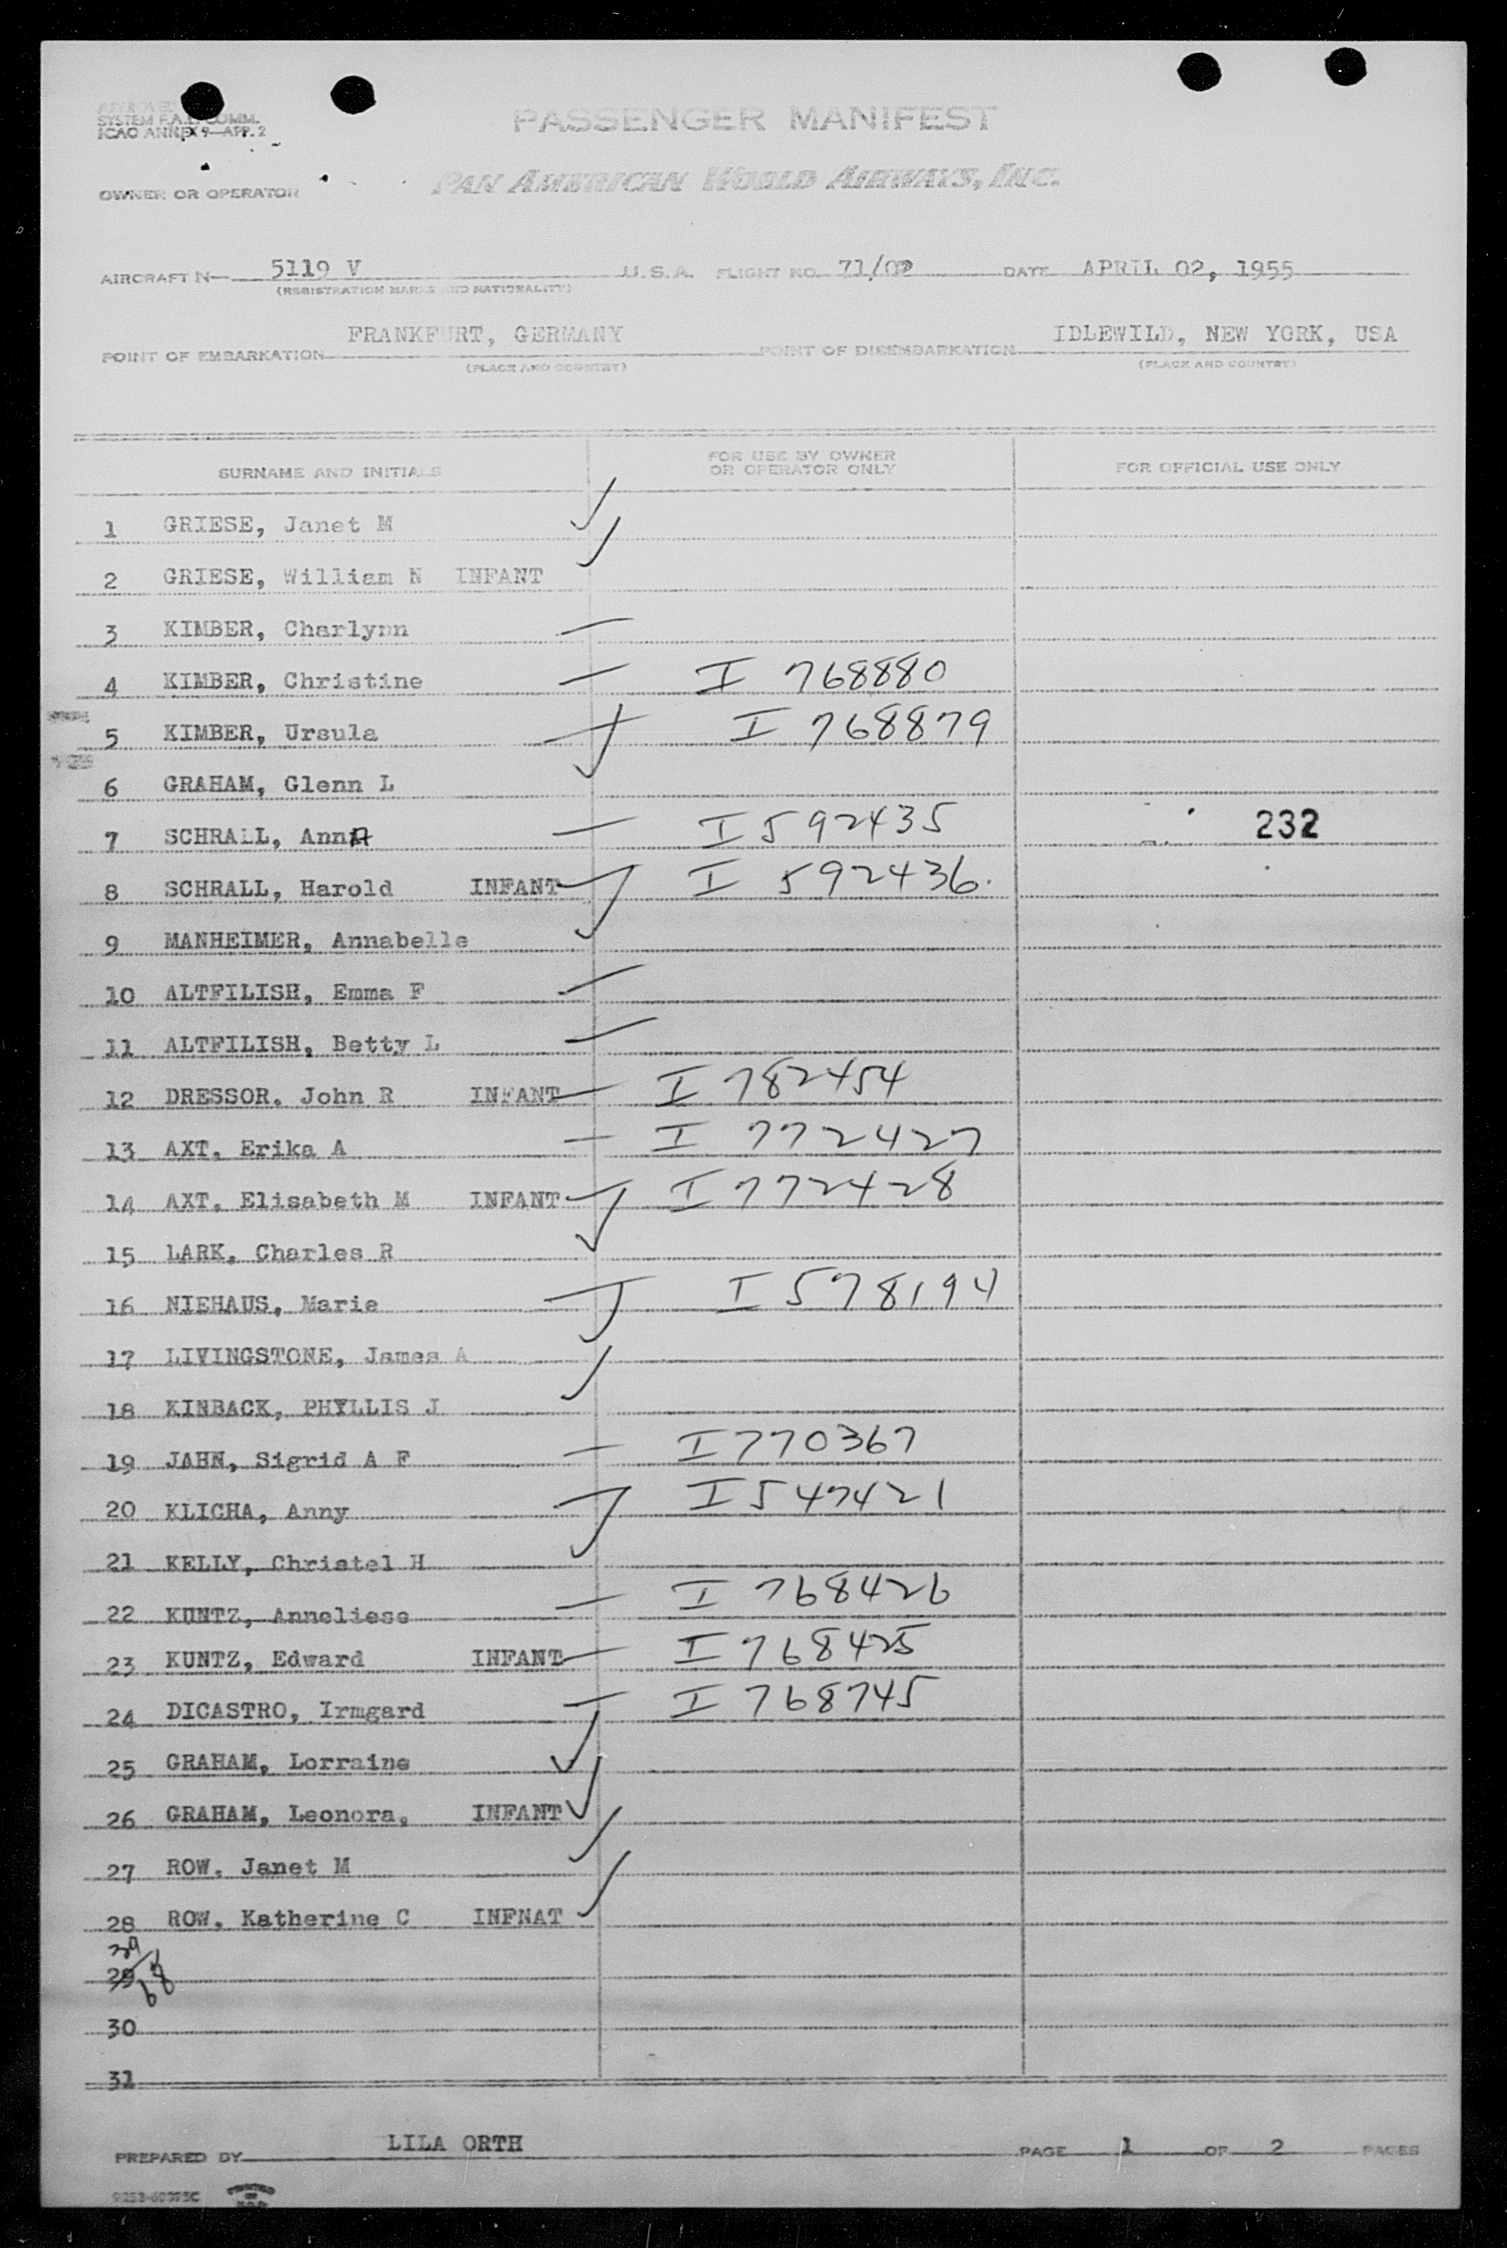 APPROVED
SYSTEM F.A.L. COMM.
ICAO ANNEX 9-APP. 2
PASSENGER MANIFEST
OWNER OR OPERATOR PAN AMERICAN WORLD AIRWAYS, INC.
AIRCRAFT N- 5119 V U.S.A. FLIGHT NO. 71/02 DATE APRIL 02, 1955
(REGISTRATION MARKS AND NATIONALITY)
FRANKFURT, GERMANY IDLEWILD, NEW YORK, USA
POINT OF EMBARKATION POINT OF DISEMBARKATION
(PLACE AND COUNTRY) (PLACE AND COUNTRY)
SURNAME AND INITIALS FOR USE BY OWNER OR OPERATOR ONLY FOR OFFICIAL USE ONLY
1 GRIESE, Janet M
2 GRIESE, William N INFANT
3 KIMBER, Charlynn
4 KIMBER, Christine I 768880
5 KIMBER, Ursula I 768879
6 GRAHAM, Glenn L
7 SCHRALL, AnnA I 592435 232
8 SCHRALL, Harold INFANT I 592436.
9 MANHEIMER, Annabelle
10 ALTFILISH, Emma F
11 ALTFILISH, Betty L
12 DRESSOR. John R INFANT I 782454
13 AXT. Erika A I 772427
14 AXT. Elisabeth M INFANT I 772428
15 LARK. Charles R
16 NIEHAUS, Marie I 578194
17 LIVINGSTONE, James A
18 KINBACK, PHYLLIS J
19 JAHN, Sigrid A F I 770367
20 KLICHA, Anny I 547421
21 KELLY, Christel H
22 KUNTZ, Anneliese I 768426
23 KUNTZ, Edward INFANT I 768425
24 DICASTRO, Irmgard I 768745
25 GRAHAM, Lorraine
26 GRAHAM, Leonora, INFANT
27 ROW. Janet M
28 ROW. Katherine C INFNAT
29
68
30
31
PREPARED BY LILA ORTH PAGE 1 OF 2 PAGES